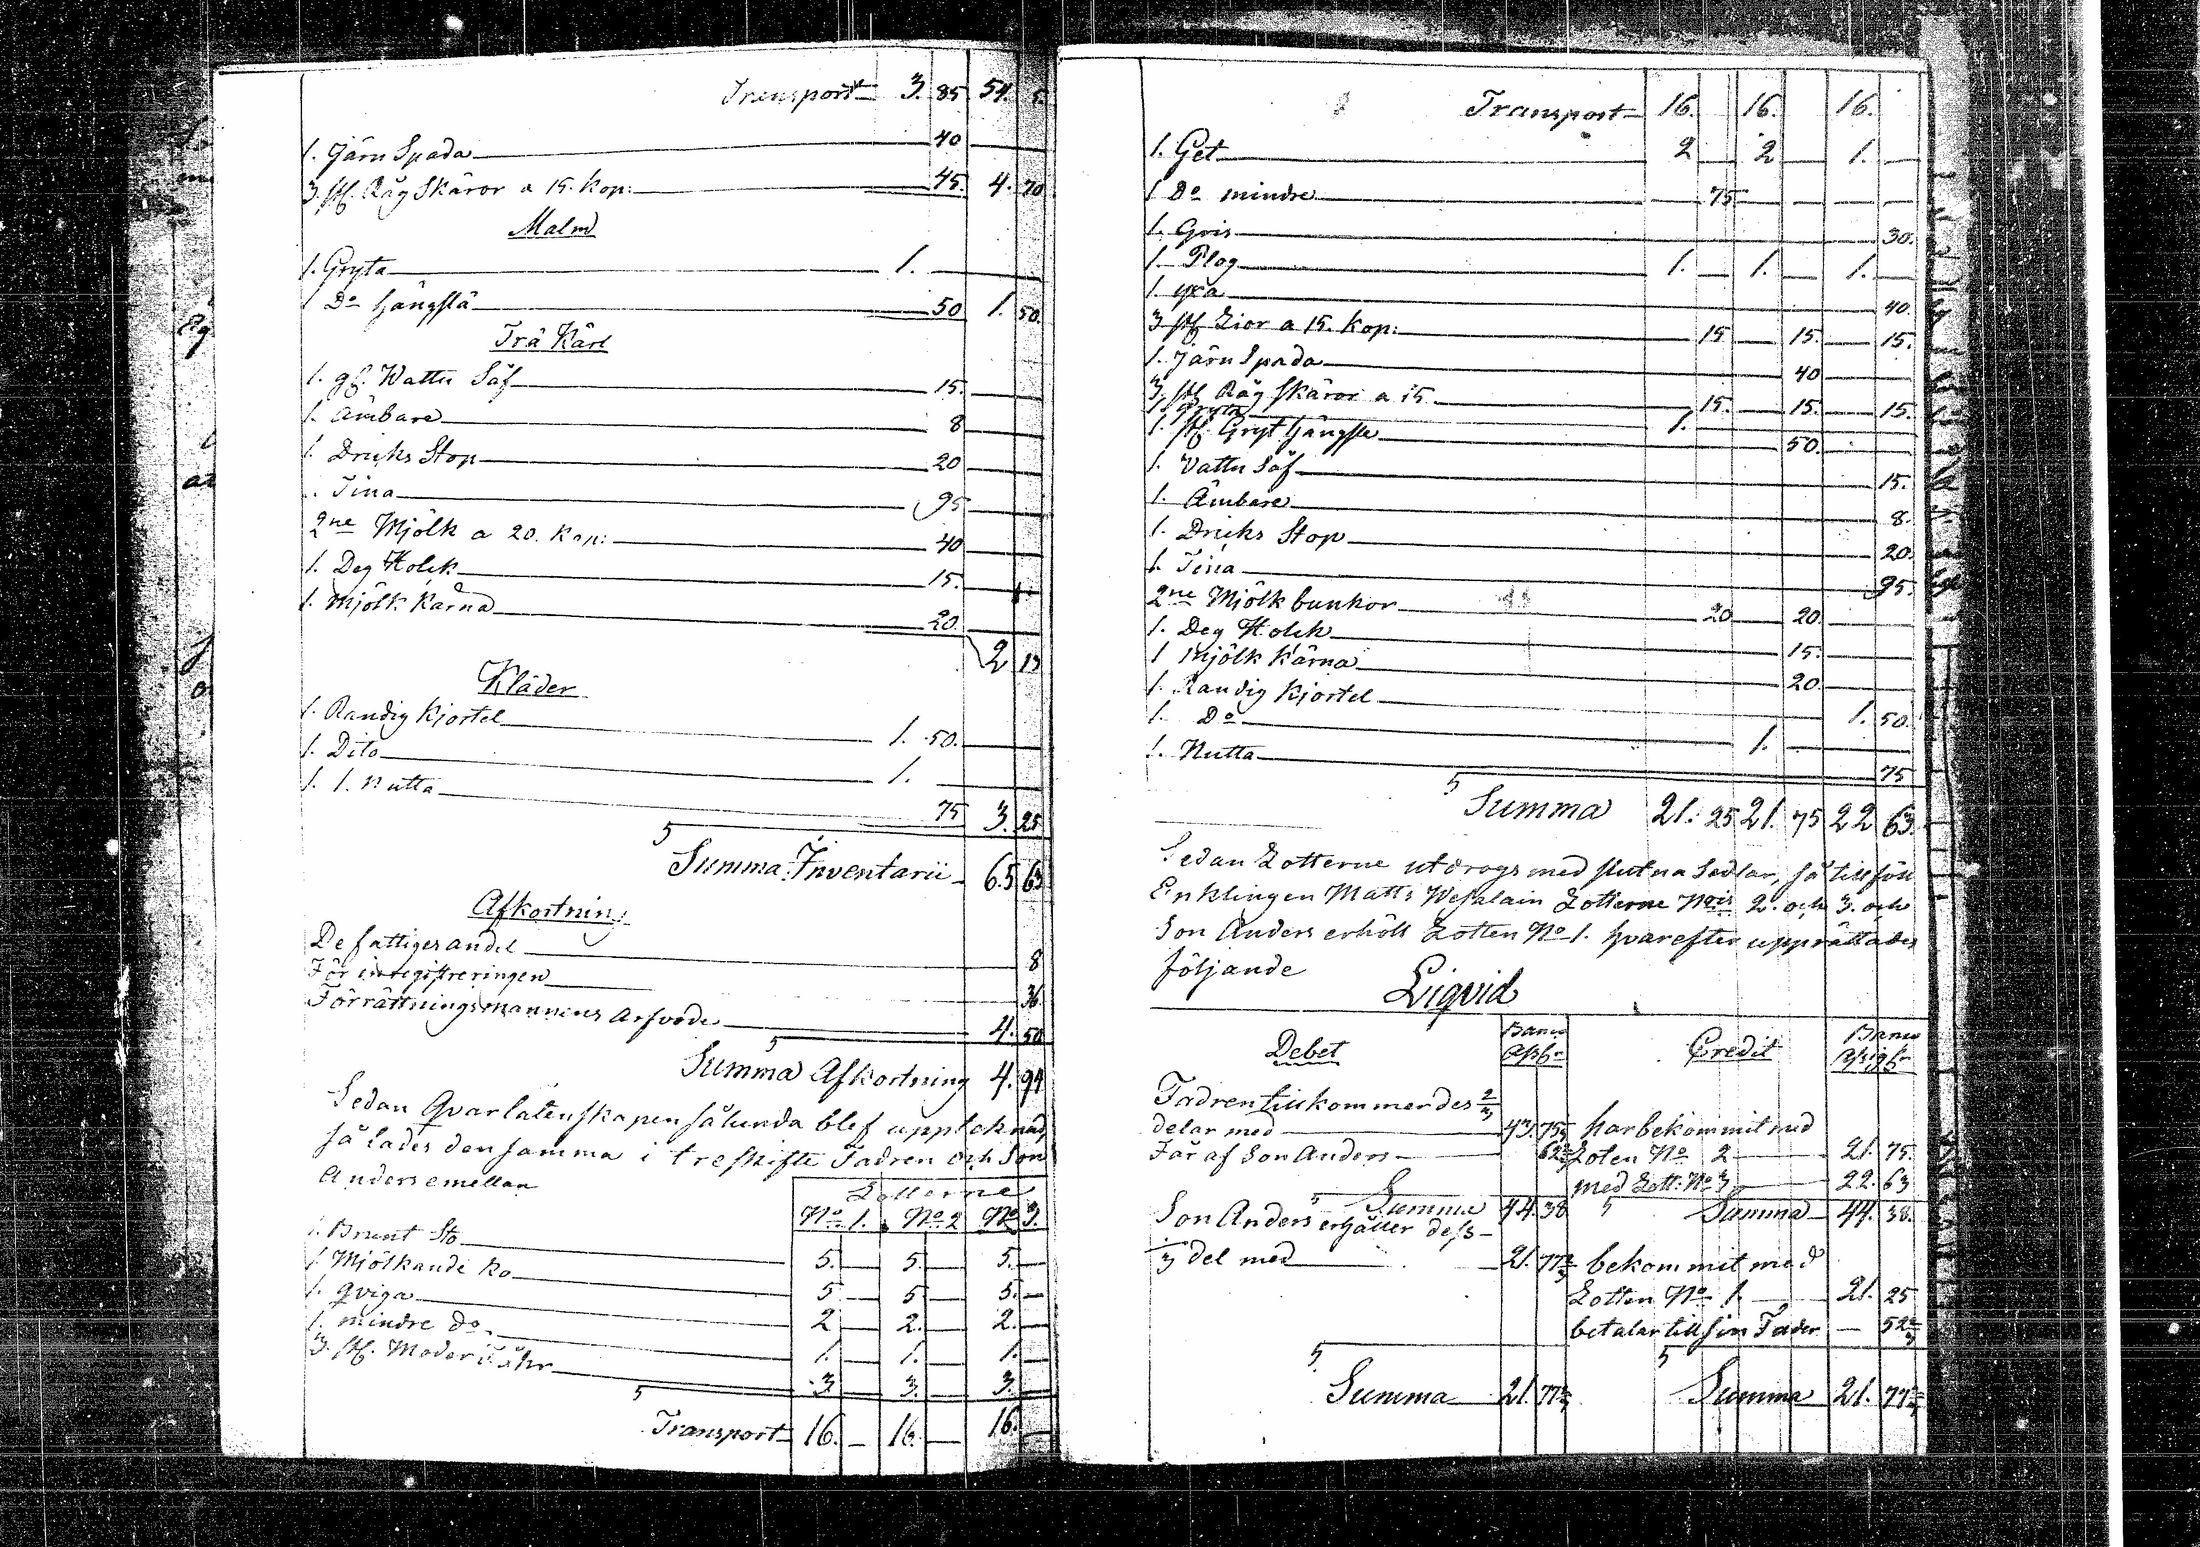 Transport 3. 85 54. 5.
1. Järn Spada 40
3. st. Råg Skäror a 15. Kop: 45. 4. 70
Malm
1. Gryta 1.
1 Do hängslä 50 1. 50.
Trä Kärl
1. gl. Wattu Såf 15.
1. Ämbare 8
1. Dricks Stop 20
1. Tina 95
2ne Mjölk a 20. Kop: 40
1. Deg Holck 15.
1. Mjölk Kärna 20.
2 13
Kläder
1. Randig Kjortel 1. 50.
1. Dito 1.
1. 1. Nutta 75 3. 25
Summa Inventarii 65 63
Afkortning
De fattiges andel 8
För inregistreringen 36
Förrättningsmannens Arfvode 4. 50
Summa Afkortning 4. 94
Sedan Qvarlåtenskapen sålunda blef upptecknad,
så lades den samma i treskifte Fadren och Son
Anders emellan
Lotterne
No 1. No 2 No 3.
1. Brunt Sto 5. 5. 5.
1 Mjölkande Ko 5 5 5.
1. Qviga 2 2. 2.
1. mindre do. 1. 1. 1.
3. st. Moder får 3. 3. 3.
Transport 16. 16. 16.
Transport 16. 16. 16.
1. Get 2 2 1.
1 Do mindre 75
1. Gris 30.
1. Plog 1. 1. 1.
1. yxa 40.
3 st. Lior a 15. Kop: 15 15. 15.
1. Järn Spada 40
3. st. Råg skäror a 15 15. 15. 15.
1. Gryta 1.
1. st. Gryt hängsle 50.
1. Vattu Såf 15.
1. Ämbare 8.
1. Dricks Stop 20.
1. Tina 95.
2ne Mjölk bunkor 20 20.
1. Deg Holck 15.
1 Mjölk Kärna 20.
1. Randig Kjortel 1. 50.
1. Do 1.
1. Nutta 75
Summa 21. 25 21. 75 22 63
Sedan Lotterne utdrogs med slutna Sedlar, så tillföll
Enklingen Matts Wesalain Lotterne Nris 2. och 3. och
Son Anders erhöll Lotten No 1. hvarefter upprättades
följande
Liqvid
Debet Banco Credit Banco
Fadren tillkommer des 2/3
delar med 43. 75 har bekommit med
Får af Son Anders 62 Loten No 2 21. 75.
med Lott: No 3 22. 63
Summa 44. 38 Summa 44. 38.
Son Anders erhåller dess
1/3 del med 21. 77 bekommit med
Lotten No 1 21. 25
betalar till sin Fader 52
Summa 21. 77 Summa 21. 77